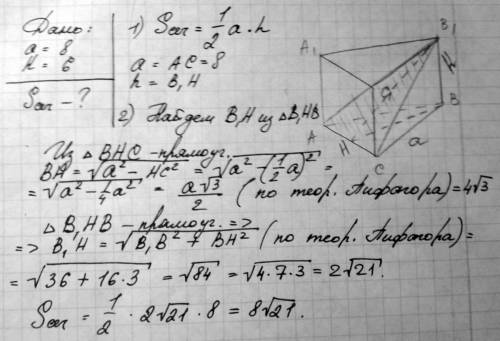 Дано:
a = 8
H = 6
Sсеч - ?
1) Sсеч = 1/2 a · h
a = AC = 8
h = B₁H
2) Найдем B₁H из △B₁HB
Из △BHC - прямоуг.
BH = √(a² - HC²) = √(a² - (1/2 a)²) =
= √(a² - 1/4 a²) = a√3/2 (по теор. Пифагора) = 4√3
△B₁HB - прямоуг. =>
=> B₁H = √(B₁B² + BH²) (по теор. Пифагора) =
= √(36 + 16·3) = √84 = √(4·7·3) = 2√21.
Sсеч = 1/2 · 2√21 · 8 = 8√21.
A₁
B₁
C₁
H
A
B
H
a
C